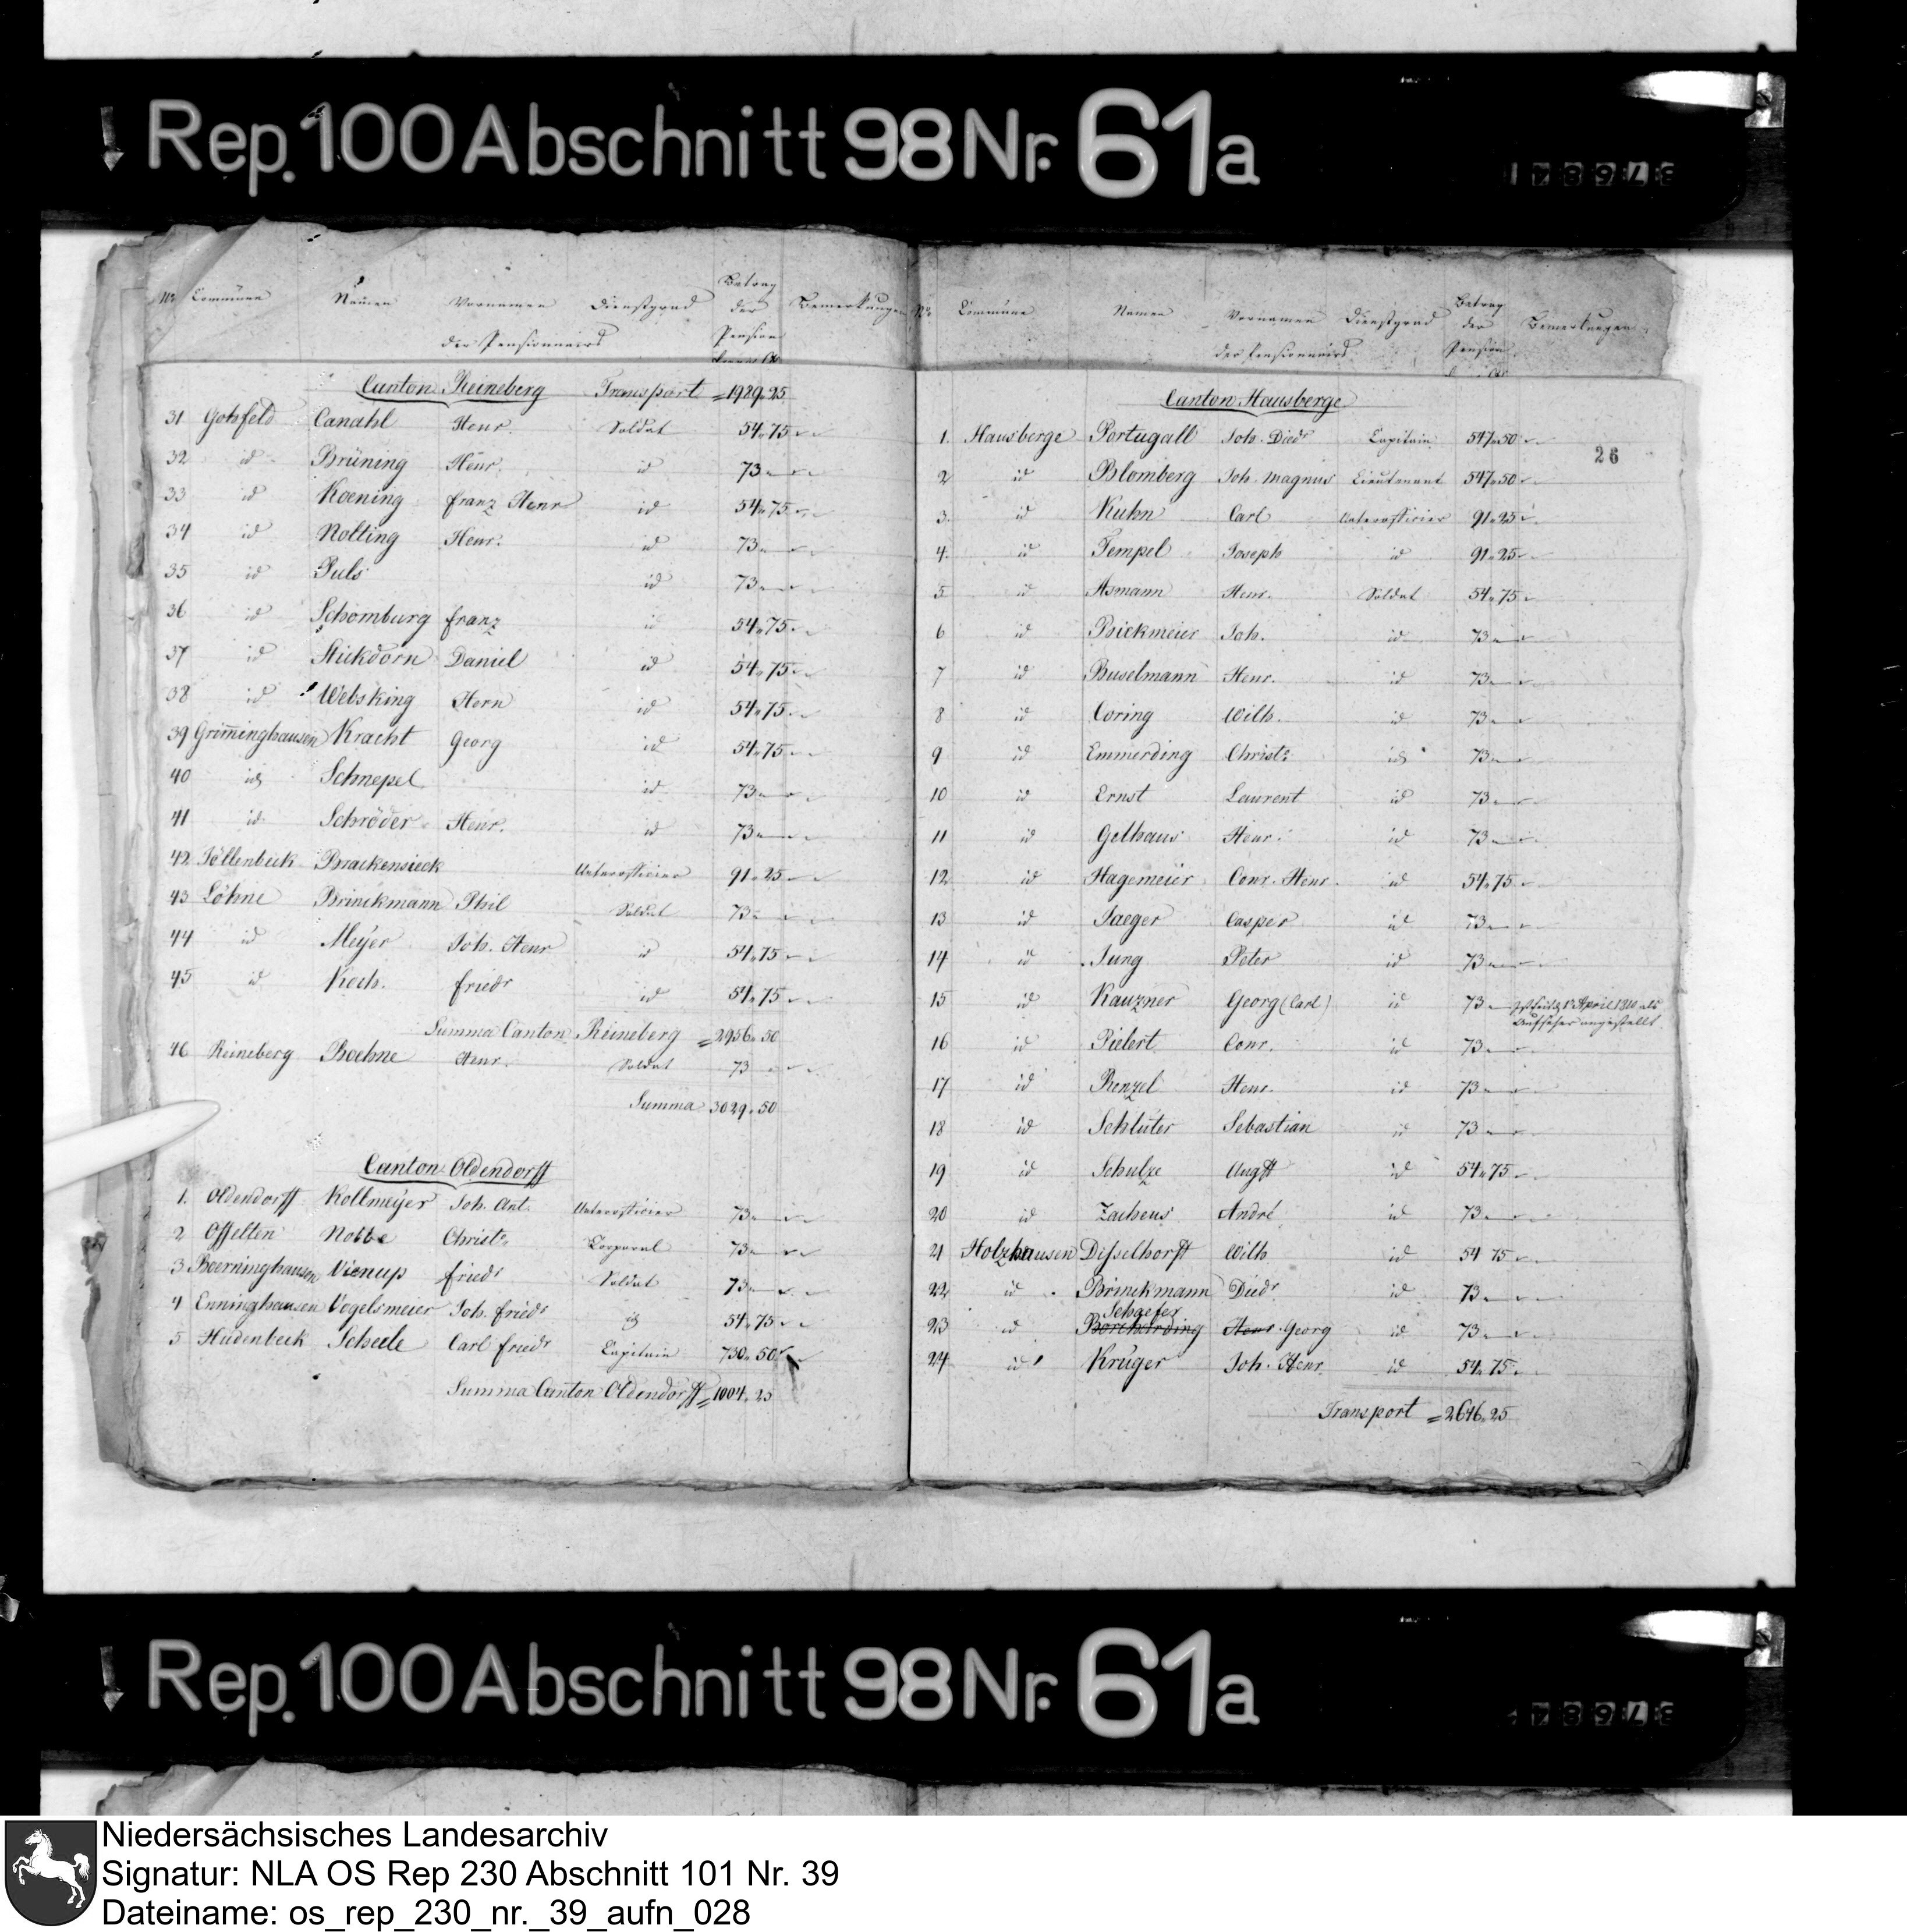 Rep. 100 Abschnitt 98 Nr. 61a
37684
No Commüne Namen Vornamen Dienstgrad Betrag der Pension Bemerkungen
der Pensionnairs
Canton Reineberg Transport =1929.25
31 Gohfeld Canahl Henr. Soldat 54.75
32 id Brüning Henr. id 73
33 id Koening franz Henr id 54.75
34 id Nolting Henr. id 73
35 id Puls id 73
36 id Schomburg franz id 54.75
37 id Stickdorn Daniel id 54.75
38 id Websking Herm id 54.75
39 Grim̄inghausen Kracht Georg id 54.75
40 id Schnepel id 73
41 id Schröder Henr. id 73
42 Jöllenbeck Brackensieck Unterofficier 91.25
43 Löhne Brinckmann Phil Soldat 73
44 id Meyer Joh. Henr id 54.75
45 id Koch. friedr id 54.75
Summa Canton Reineberg =2956.50
46 Reineberg Boehne Henr. Soldat 73
Summa 3029.50
Canton Oldendorff
1. Oldendorff Kollmeyer Joh. Ant. Unterofficier 73
2 Offelten Nobbe Christ. Corporal 73
3 Boerninghausen Vienup friedr Soldat 73
4 Enninghausen Vogelsmeier Joh. friedr id 54.75
5 Hüdenbeck Scheele Carl friedr Capitain 730.50
Summa Canton Oldendorff =1004.25
No Commüne Namen Vornamen Dienstgrad Betrag der Pension Bemerkungen
der Pensionnairs
Canton Hausberge
26
1. Hausberge Portugall Joh. Diedr Capitain 547.50
2 id Blomberg Joh. Magnus Lieutenant 547.50
3. id Kuhn Carl Unterofficier 91.25
4. id Tempel Joseph id 91.25
5 id Asmann Henr. Soldat 54.75
6 id Bickmeier Joh. id 73
7 id Buselmann Henr. id 73
8 id Coring Wilh. id 73
9 id Emmerding Christ. id 73
10 id Ernst Laurent id 73
11 id Gelhaus Henr. id 73
12 id Hagemeier Conr. Henr. id 54.75
13 id Jaeger Casper id 73
14 id Jung Peter id 73
15 id Kauzner Georg (Carl) id 73 April 1810 als
Aufseher angestellt
16 id Pielert Conr. id 73
17 id Renzel Henr. id 73
18 id Schlüter Sebastian id 73
19 id Schulze Augst id 54.75
20 id Zacheus André id 73
21 Holzhausen Disselhorst Wilh id 54 75
22 id Brinckmann Diedr id 73
Schaefer
23 id Borcherding Henr. Georg id 73
24 id Krüger Joh. Henr. id 54.75
Transport =2646.25
Rep. 100 Abschnitt 98 Nr. 61a
37684
Niedersächsisches Landesarchiv
Signatur: NLA OS Rep 230 Abschnitt 101 Nr. 39
Dateiname: os_rep_230_nr._39_aufn_028